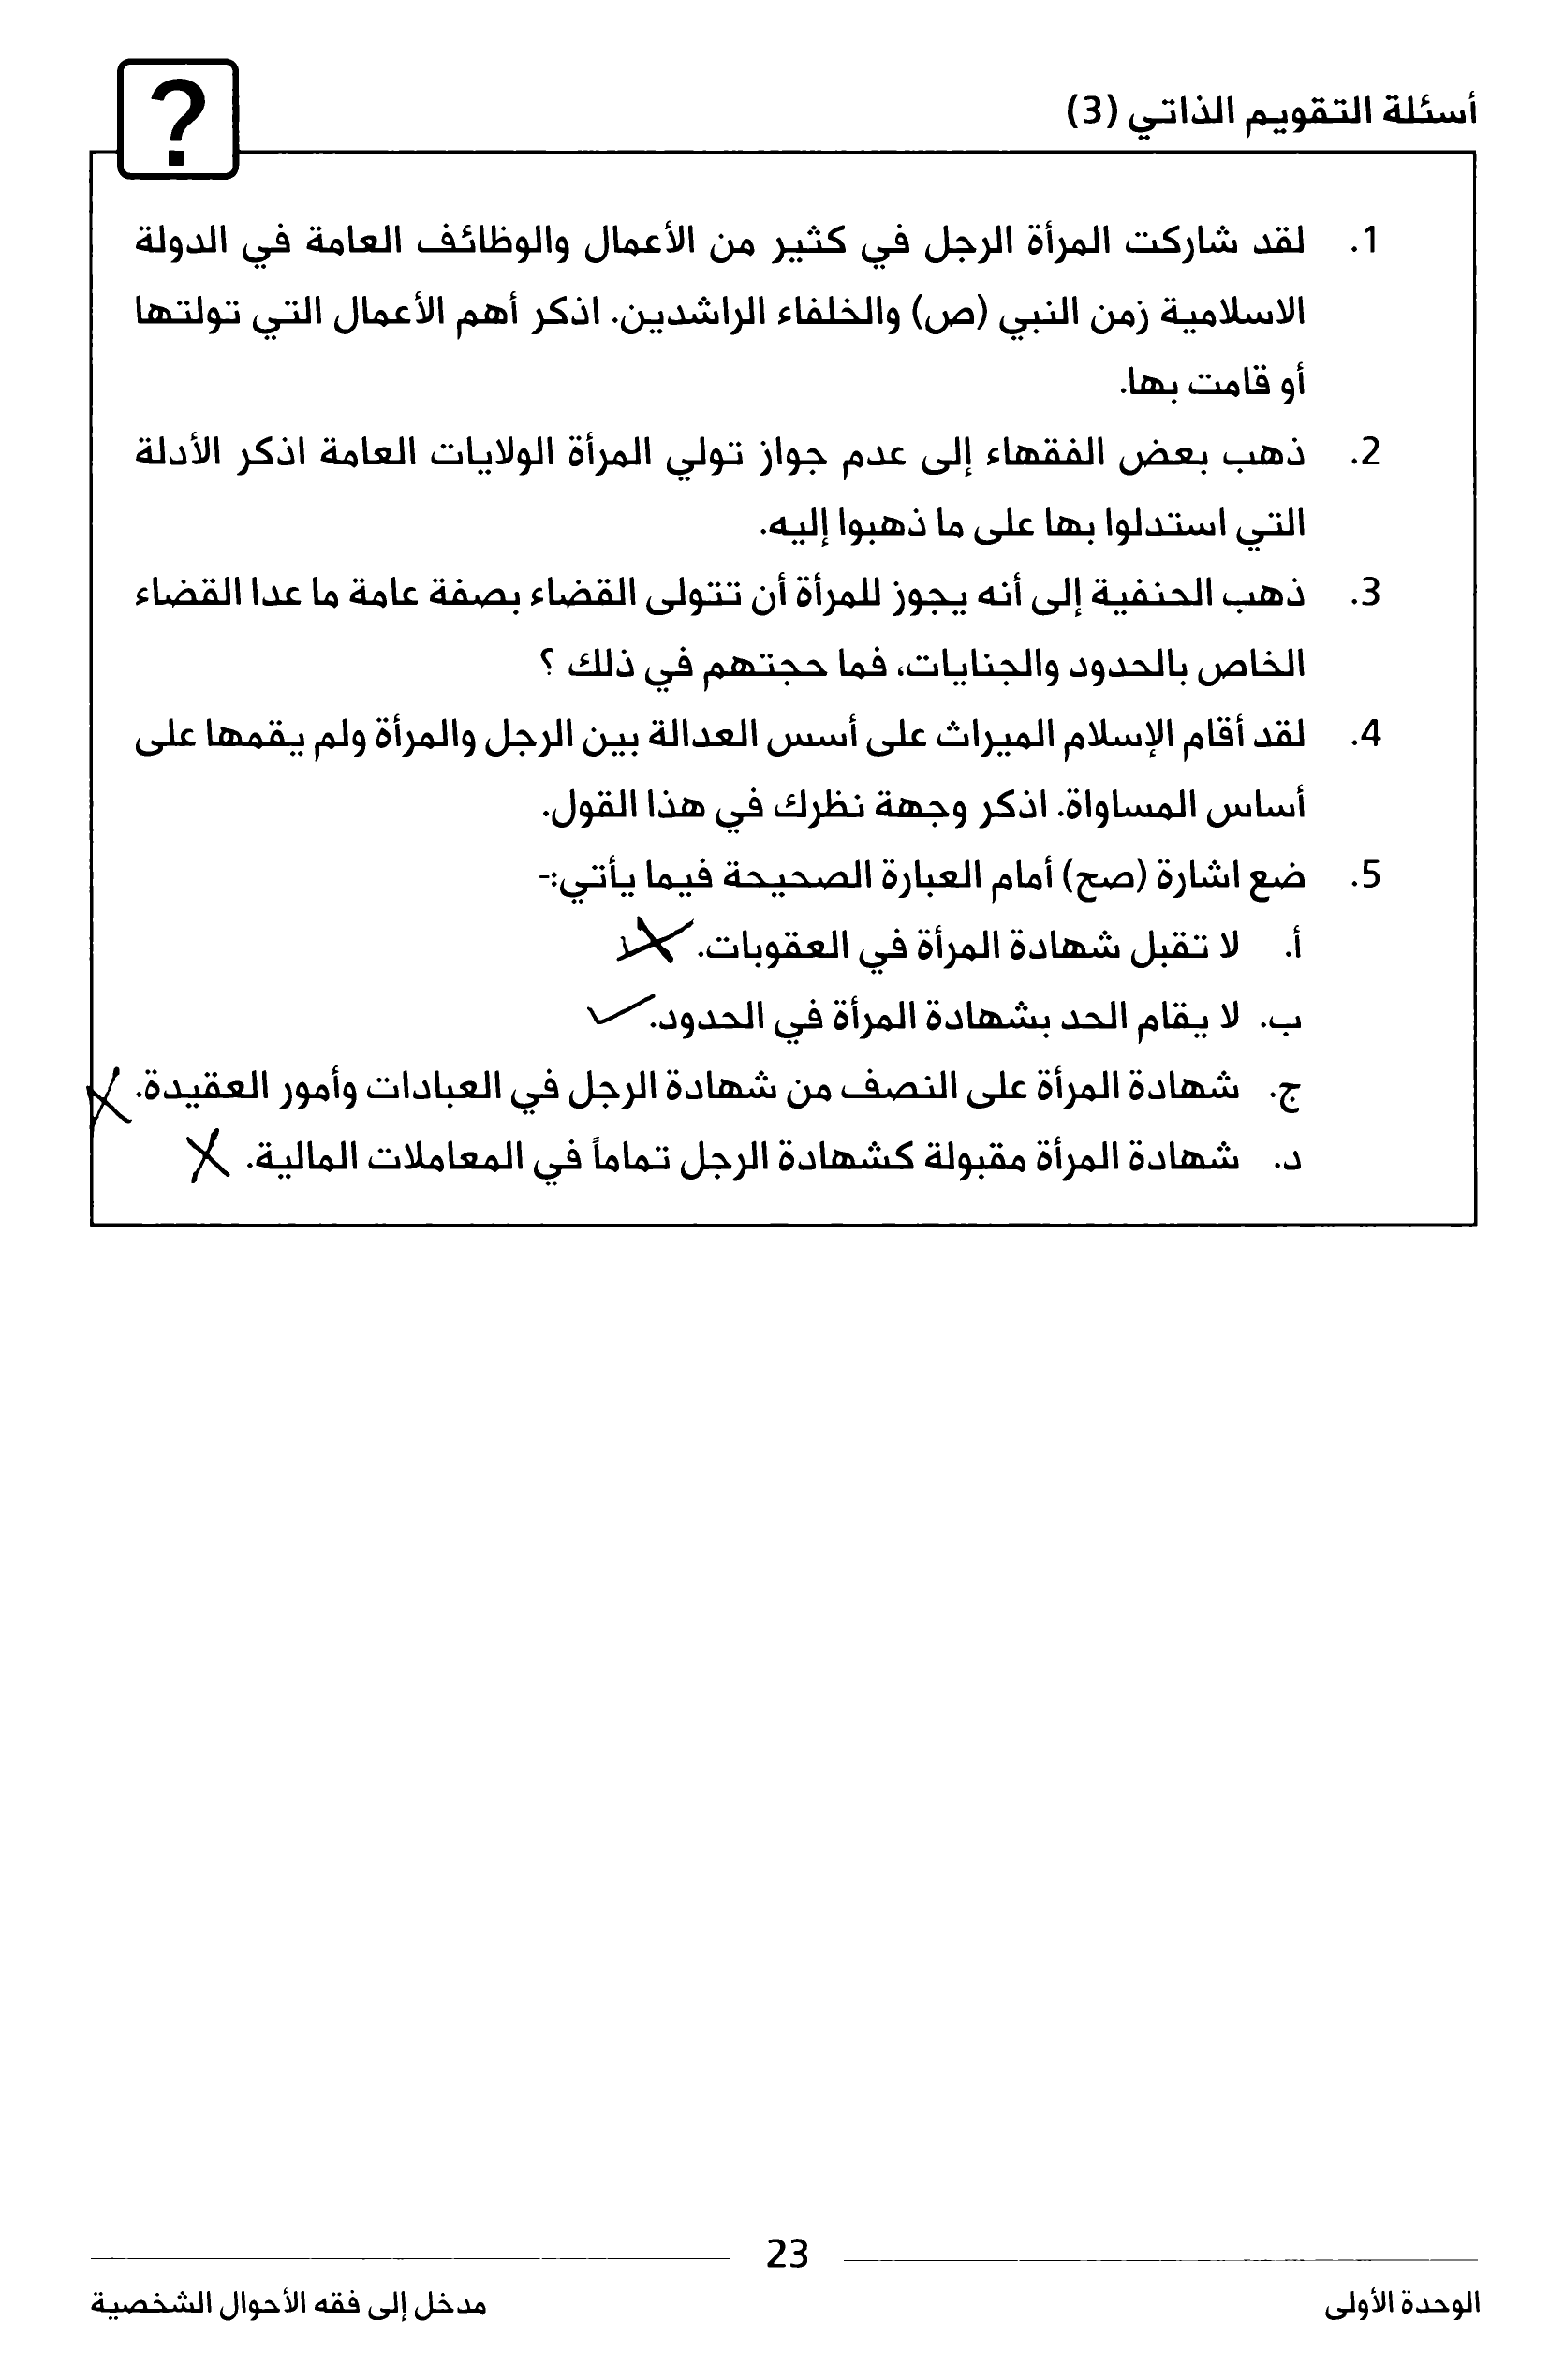 أسئلة التقويم الذاتي (3)
?
1. لقد شاركت المرأة الرجل في كثير من الأعمال والوظائف العامة في الدولة
الاسلامية زمن النبي (ص) والخلفاء الراشدين. اذكر أهم الأعمال التي تولتها
أو قامت بها.
2. ذهب بعض الفقهاء إلى عدم جواز تولي المرأة الولايات العامة اذكر الأدلة
التي استدلوا بها على ما ذهبوا إليه.
3. ذهب الحنفية إلى أنه يجوز للمرأة أن تتولى القضاء بصفة عامة ما عدا القضاء
الخاص بالحدود والجنايات، فما حجتهم في ذلك ؟
4. لقد أقام الإسلام الميراث على أسس العدالة بين الرجل والمرأة ولم يقمها على
أساس المساواة. اذكر وجهة نظرك في هذا القول.
5. ضع اشارة (صح) أمام العبارة الصحيحة فيما يأتي:-
أ. لا تقبل شهادة المرأة في العقوبات.
ب. لا يقام الحد بشهادة المرأة في الحدود.
ج. شهادة المرأة على النصف من شهادة الرجل في العبادات وأمور العقيدة.
د. شهادة المرأة مقبولة كشهادة الرجل تماماً في المعاملات المالية.
23
الوحدة الأولى
مدخل إلى فقه الأحوال الشخصية